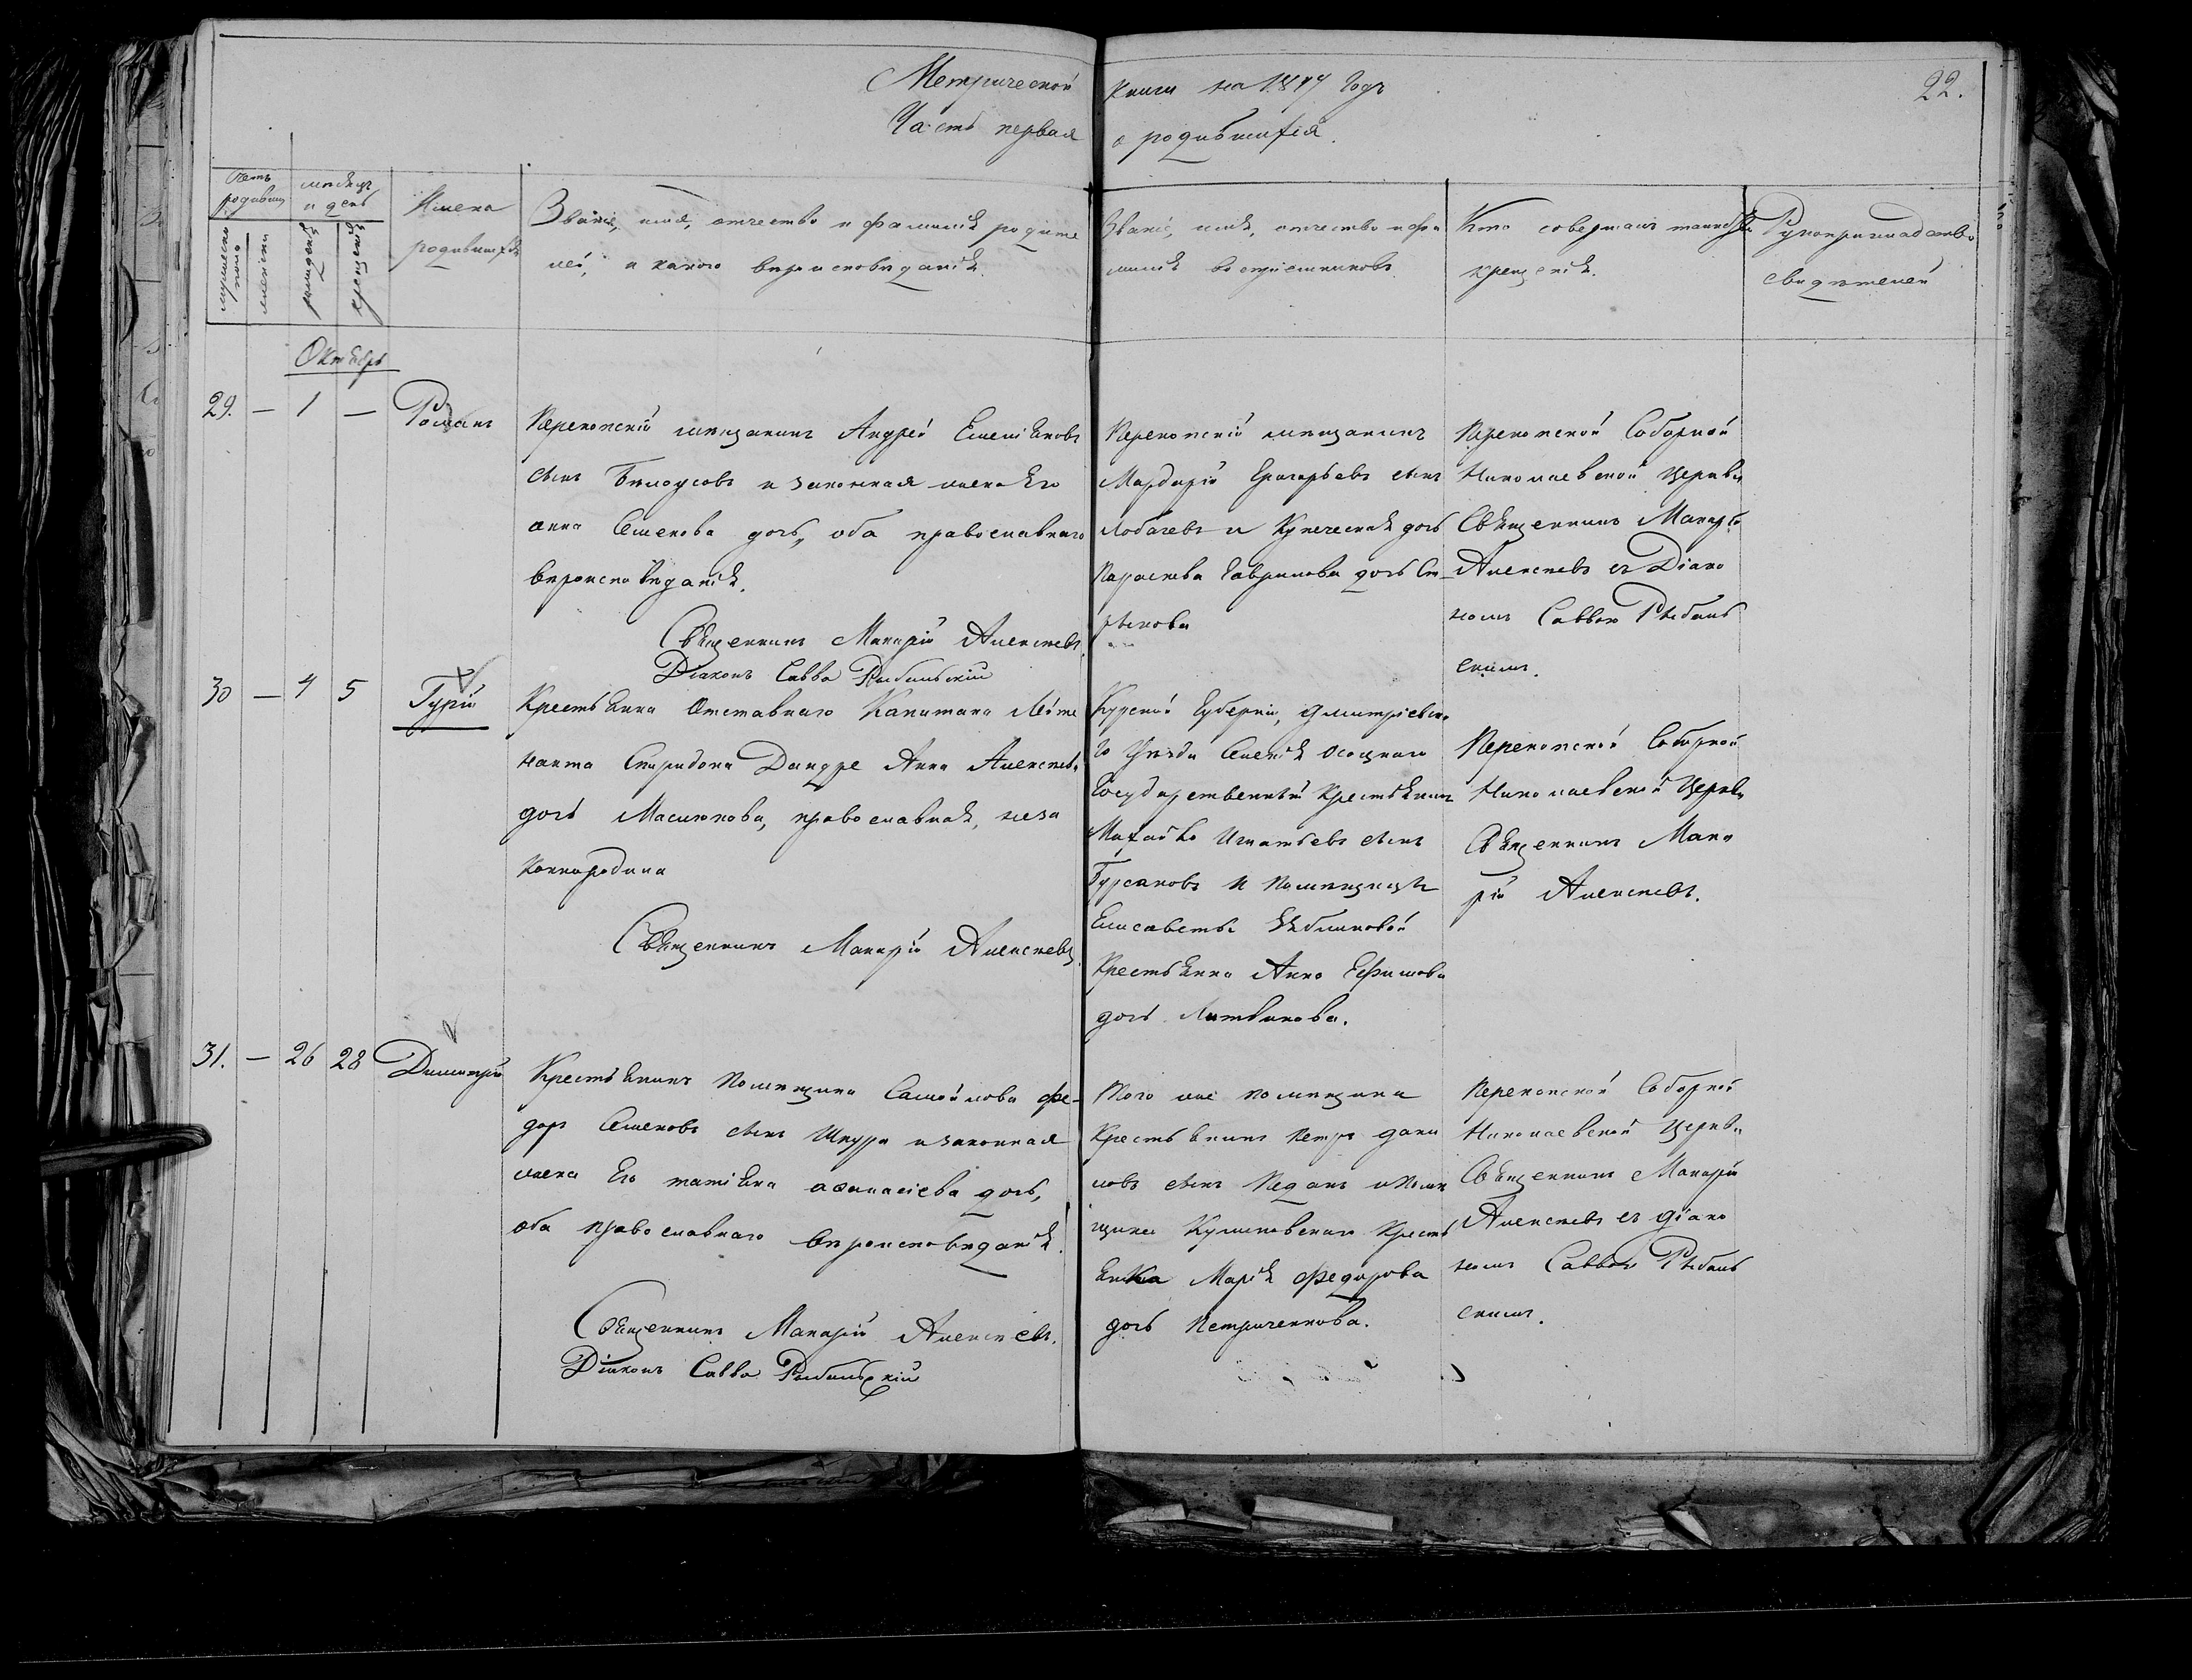 Метрической книги на 1847 годъ
22.
Часть первая о родившихся.
Счетъ родивших
мужеска пола
женска
месяцъ и день
рожденія
крещенія
Имена
родившихся
Званіе, имя, отчество и фамилія родите
лей, и какого вѣроисповѣданія.
Званіе, имя, отчество и фа
милія воспріемниковъ.
Кто совершалъ таинство
крещенія.
Рукоприкладство
свидѣтелей
Октябрь
29. — 1 — Романъ
Перекопскій мѣщанинъ Андрей Емеліяновъ
сынъ Бѣлоусовъ и законная жена Его
анна Семенова дочь, оба православнаго
вѣроисповѣданія.
Священникъ Макарій Алексѣевъ.
Діаконъ Савва Рыбальскій
Перекопскій мѣщанинъ
Мардарій сынъ
Лобачевъ и Купеческая дочь
Параскева Гаврилова дочь Ст
рыкова
Перекопской Соборной
Николаевской Церкви
Священникъ Макарій
Алексѣевъ съ Діако
номъ Саввою Рыбаль
скимъ.
30 — 4 5 Гурій
Крестьянка Отставнаго Капитана Лейте
нанта Спиридона Дандре Анна Алексѣева
дочь Маслюкова, православная, неза
коннородила
Священникъ Макарій Алексѣевъ.
Курской Губерніи, Дмитріевска
го Уѣзда Селенія
Государственный Крестьянинъ
Игнатьевъ сынъ
Бурсаковъ и Помѣщицы
Елисаветы Зяблиновой
Крестьянка Анна Ефимова
дочь Литвинова.
Перекопской Соборной
Николаевской Церкви
Священникъ Мака
рій Алексѣевъ.
31. — 26 28 Димитрій
Крестьянинъ Помѣщика Самойлова Фе-
доръ Семеновъ сынъ Шкура и законная
жена Его татіяна афанасіева дочь,
оба православнаго вѣроисповѣданія.
Священникъ Макарій Алексѣевъ.
Діаконъ Савва Рыбальскій
Того же помѣщика
Крестьянинъ Петръ дани
ловъ сынъ Педанъ и Помѣ
щика Куликовскаго Кресть
янка Марія Федорова
дочь Петриченкова.
Перекопской Соборной
Николаевской Церкви
Священникъ Макарій
Алексѣевъ съ діако
номъ Саввою Рыбаль
скимъ.